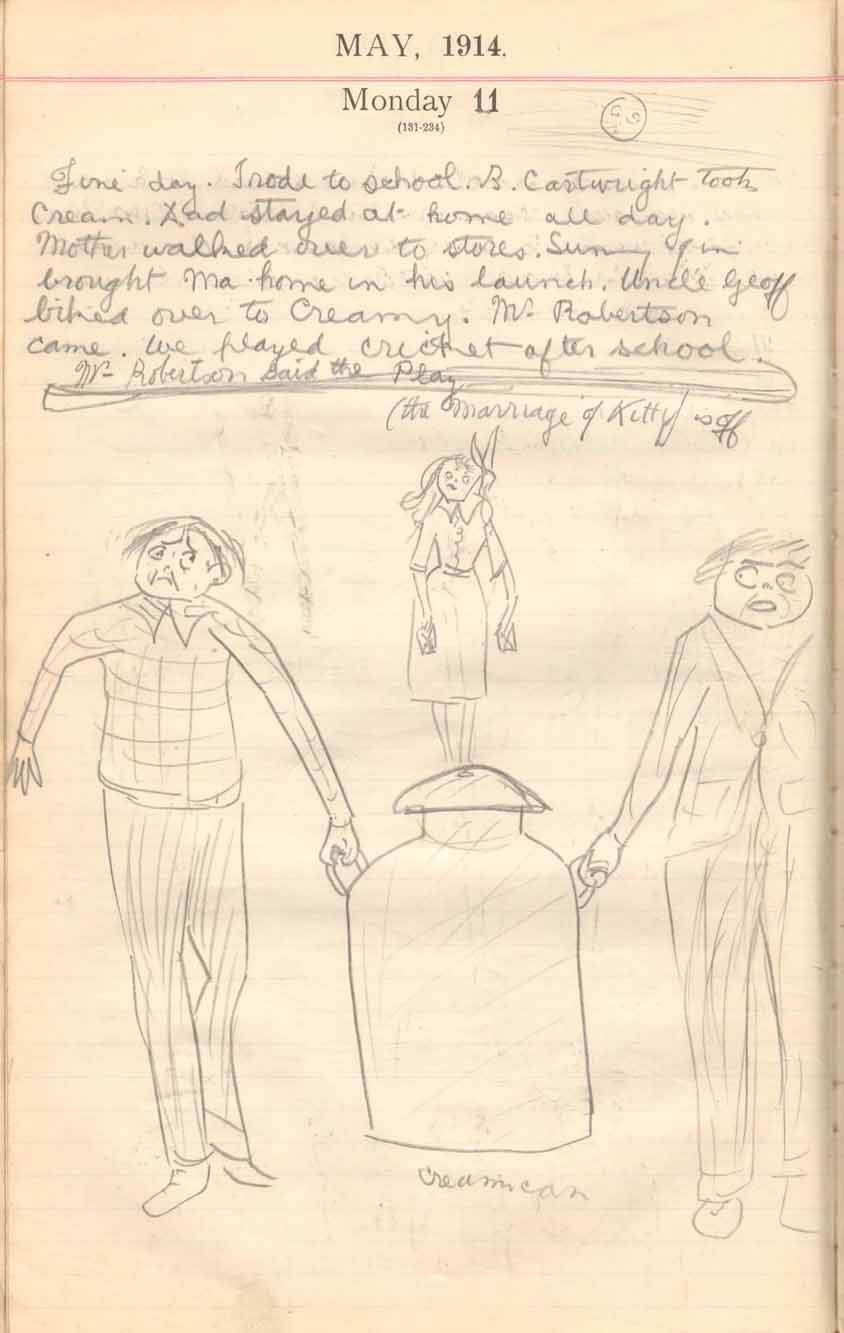 MAY, 1914.
Monday 11
(131-234)
Fine day. I rode to school. B. Cartwright took
Cream. Dad stayed at home all day.
Mother walked over to stores. Sunny Jim
brought Ma home in his launch. Uncle Geoff
biked over to Creamy. Mr Robertson
came. We played cricket after school.
Mr Robertson said the Play
(the Marriage of Kitty) is off
Creamican